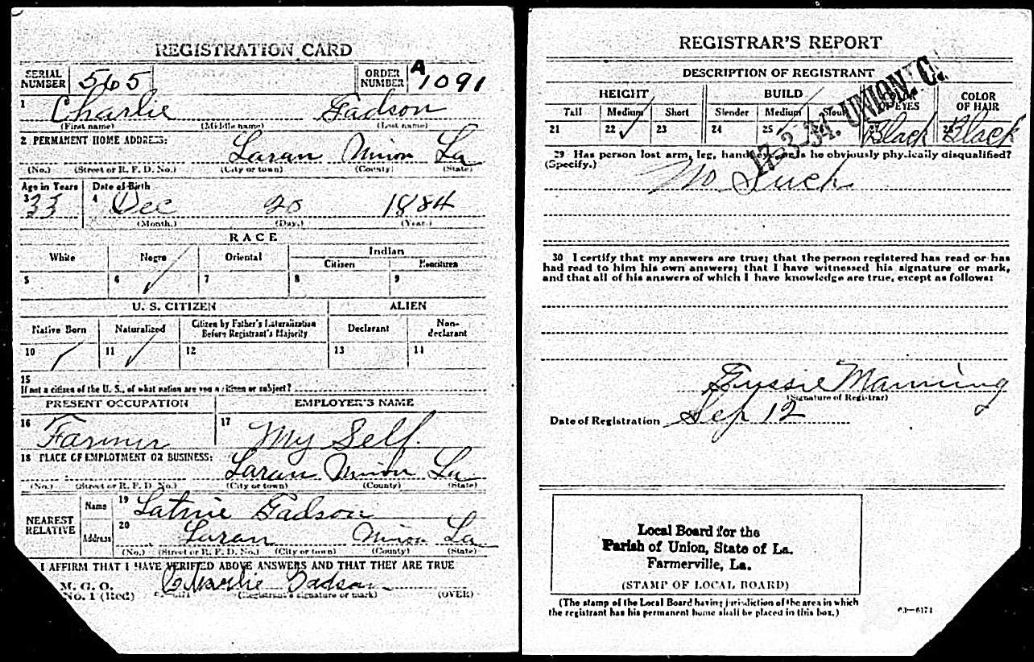 REGISTRATION CARD
SERIAL NUMBER 565 ORDER NUMBER A 1091
1 Charlie Gadson
(First name) (Middle name) (Last name)
2 PERMANENT HOME ADDRESS:
Laran Union La
(No.) (Street or R. F. D. No.) (City or town) (County) (State)
Age in Years Date of Birth
3 33 4 Dec 20 1884
(Month.) (Day.) (Year.)
RACE
White Negro Oriental Indian
Citizen Noncitizen
5 6 ✓ 7 8 9
U. S. CITIZEN ALIEN
Native Born Naturalized Citizen by Father's Naturalization Before Registrant's Majority Declarant Non-declarant
10 / 11 ✓ 12 13 14
15
If not a citizen of the U. S., of what nation are you a citizen or subject?
PRESENT OCCUPATION EMPLOYER'S NAME
16 Farmer 17 My Self.
18 PLACE OF EMPLOYMENT OR BUSINESS:
Laran Union La
(No.) (Street or R. F. D. No.) (City or town) (County) (State)
NEAREST RELATIVE
Name 19 Gadson
Address 20 Laran Union La
(No.) (Street or R. F. D. No.) (City or town) (County) (State)
I AFFIRM THAT I HAVE VERIFIED ABOVE ANSWERS AND THAT THEY ARE TRUE
P. M. G. O.
Form No. 1 (Red) Charlie Gadson
(Registrant's signature or mark) (OVER)
REGISTRAR'S REPORT
DESCRIPTION OF REGISTRANT
HEIGHT BUILD COLOR OF EYES COLOR OF HAIR
Tall Medium Short Slender Medium Stout
21 22 ✓ 23 24 25 26 27 Black 28 Black
17-2-34. UNION C.
29 Has person lost arm, leg, hand, eye, or is he obviously physically disqualified?
(Specify.) No Such
30 I certify that my answers are true; that the person registered has read or has
had read to him his own answers; that I have witnessed his signature or mark,
and that all of his answers of which I have knowledge are true, except as follows:
Gussie Manning
(Signature of Registrar)
Date of Registration Sep 12
Local Board for the
Parish of Union, State of La.
Farmerville, La.
(STAMP OF LOCAL BOARD)
(The stamp of the Local Board having jurisdiction of the area in which
the registrant has his permanent home shall be placed in this box.)